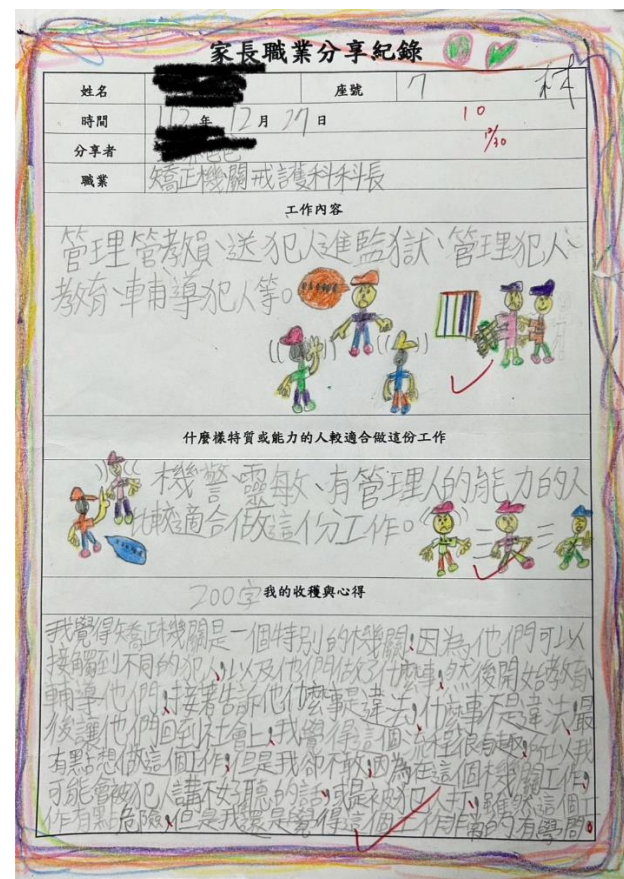 家長職業分享紀錄
姓名 座號 7 林
時間 112年12月27日 10
分享者 12/30
職業 矯正機關戒護科科長
工作內容
管理管教員、送犯人進監獄、管理犯人、
教育、輔導犯人等。
什麼樣特質或能力的人較適合做這份工作
機警靈敏、有管理人的能力的人
比較適合做這份工作。
200字 我的收穫與心得
我覺得矯正機關是一個特別的機關,因為他們可以
接觸到不同的犯人,以及他們做了什麼事,然後開始教育
輔導他們,接著告訴他什麼事是違法,什麼事不是違法,最
後讓他們回到社會上,我覺得這個流程很有趣,所以我
有點想做這個工作,但是我卻不敢,因為在這個機關工作,
可能會被犯人講不好聽的話,或是被犯人打,雖然這個工
作有點危險,但是我還是覺得這個工作非常的有學問。